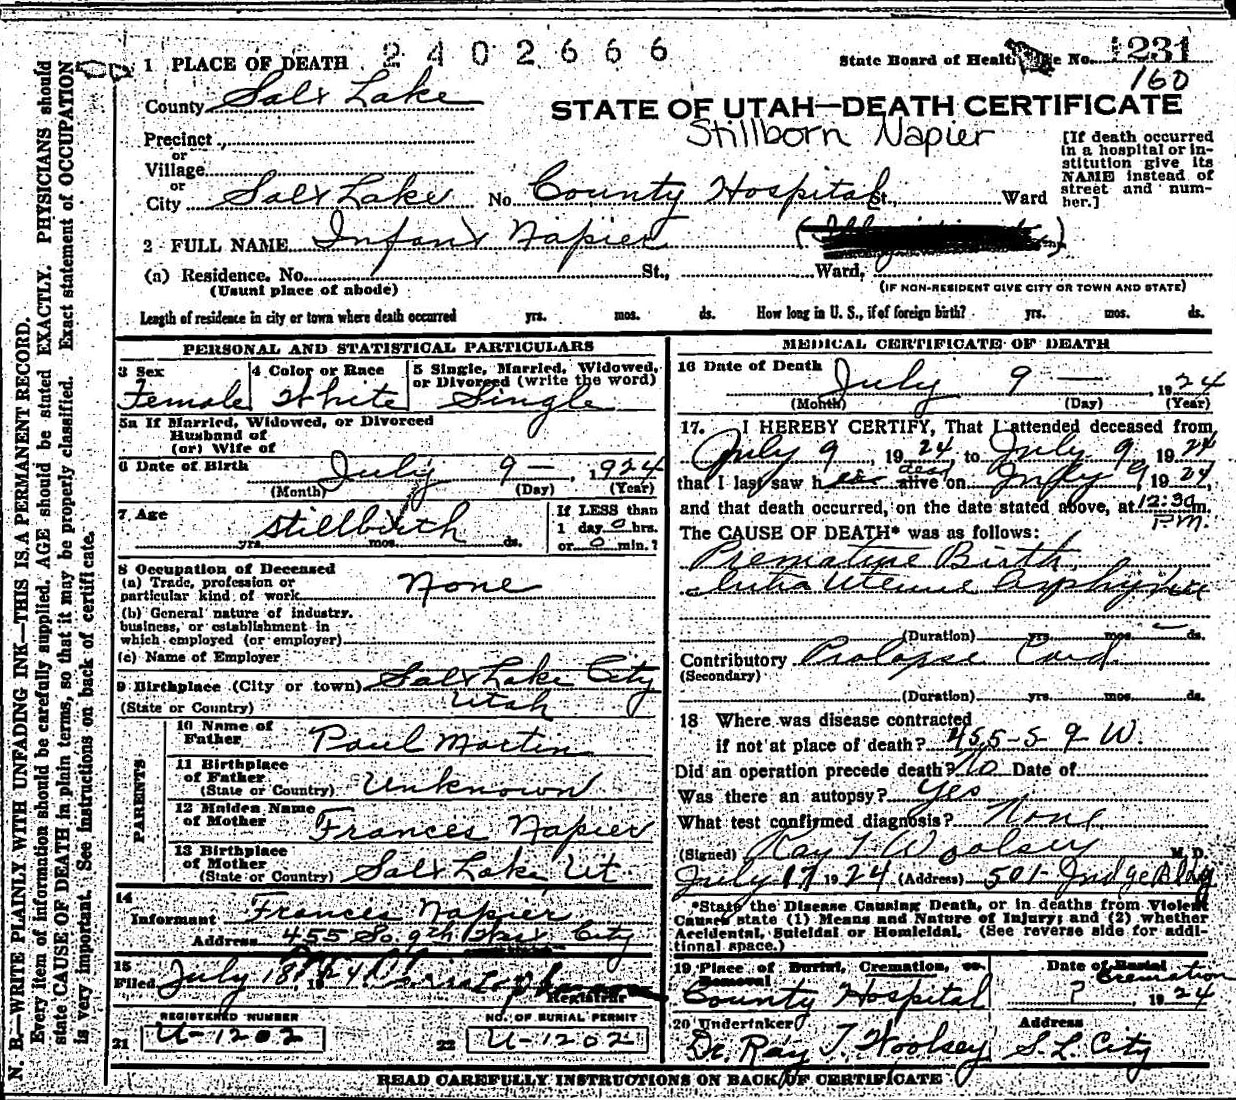 2402666
1 PLACE OF DEATH
State Board of Health File No. 231
160
County Salt Lake
STATE OF UTAH—DEATH CERTIFICATE
Stillborn Napier
Precinct
or
Village
or
City Salt Lake No. County Hospital St., Ward
[If death occurred in a hospital or institution give its NAME instead of street and number.]
2 FULL NAME Infant Napier
(a) Residence, No. St., Ward,
(Usual place of abode)
(IF NON-RESIDENT GIVE CITY OR TOWN AND STATE)
Length of residence in city or town where death occurred yrs. mos. ds. How long in U. S., if of foreign birth? yrs. mos. ds.
PERSONAL AND STATISTICAL PARTICULARS
3 Sex
Female
4 Color or Race
White
5 Single, Married, Widowed, or Divorced (write the word)
Single
5a If Married, Widowed, or Divorced
Husband of
(or) Wife of
6 Date of Birth
July 9 — , 1924
(Month) (Day) (Year)
7 Age
stillbirth
yrs. mos. ds.
If LESS than
1 day 0 hrs.
or 0 min.?
8 Occupation of Deceased
(a) Trade, profession or
particular kind of work None
(b) General nature of industry,
business, or establishment in
which employed (or employer)
(c) Name of Employer
9 Birthplace (City or town) Salt Lake City
(State or Country) Utah
PARENTS
10 Name of
Father Paul Martin
11 Birthplace
of Father
(State or Country) Unknown
12 Maiden Name
of Mother Frances Napier
13 Birthplace
of Mother
(State or Country) Salt Lake Ut.
14
Informant Frances Napier
Address 455 So. 9th West City
15
Filed July 18, 1924
Registrar
REGISTERED NUMBER
21 U-1202
NO. OF BURIAL PERMIT
22 U-1202
MEDICAL CERTIFICATE OF DEATH
16 Date of Death July 9 — , 1924
(Month) (Day) (Year)
17. I HEREBY CERTIFY, That I attended deceased from
July 9, 1924, to July 9, 1924
that I last saw her dead alive on July 9, 1924,
and that death occurred, on the date stated above, at 12:30 m.
P.M.
The CAUSE OF DEATH* was as follows:
Premature Birth
Intra Uterine Asphyxia
(Duration) yrs. mos. — ds.
Contributory Prolapse Cord
(Secondary)
(Duration) yrs. mos. ds.
18 Where was disease contracted
if not at place of death? 455-S 9 W.
Did an operation precede death? No Date of
Was there an autopsy? Yes
What test confirmed diagnosis? None
(Signed) Ray T Woolsey M. D.
July 17 1924 (Address) 501- Judge Bldg
*State the Disease Causing Death, or in deaths from Violent Causes state (1) Means and Nature of Injury; and (2) whether Accidental, Suicidal or Homicidal. (See reverse side for additional space.)
19 Place of Burial, Cremation, or Removal
County Hospital
Date of Burial
Cremation
? , 1924
20 Undertaker
Dr. Ray T. Woolsey
Address
S. L. City
READ CAREFULLY INSTRUCTIONS ON BACK OF CERTIFICATE
N. B.—WRITE PLAINLY WITH UNFADING INK—THIS IS A PERMANENT RECORD.
Every item of information should be carefully supplied. AGE should be stated EXACTLY. PHYSICIANS should
state CAUSE OF DEATH in plain terms, so that it may be properly classified. Exact statement of OCCUPATION
is very important. See instructions on back of certificate.